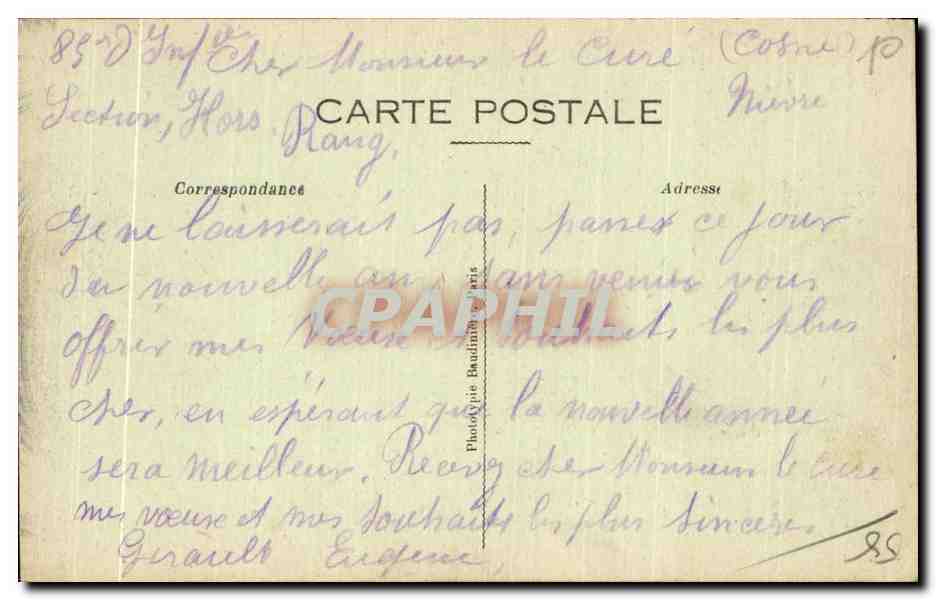 85e d'Infrie Cher Monsieur le Curé (Cosne)
Section, Hors Rang, Nièvre
CARTE POSTALE
Correspondance
Adresse
Je ne laisserait pas, passer ce jour
de nouvelle an, sans venir vous
offrir mes Vœux et souhaits les plus
cher, en espérant que la nouvelle année
sera meilleur. Recevez cher Monsieur le cure
mes vœux et mes souhaits les plus sincères
Girault Eugène,
Phototypie Baudinière, Paris
CPAPHIL